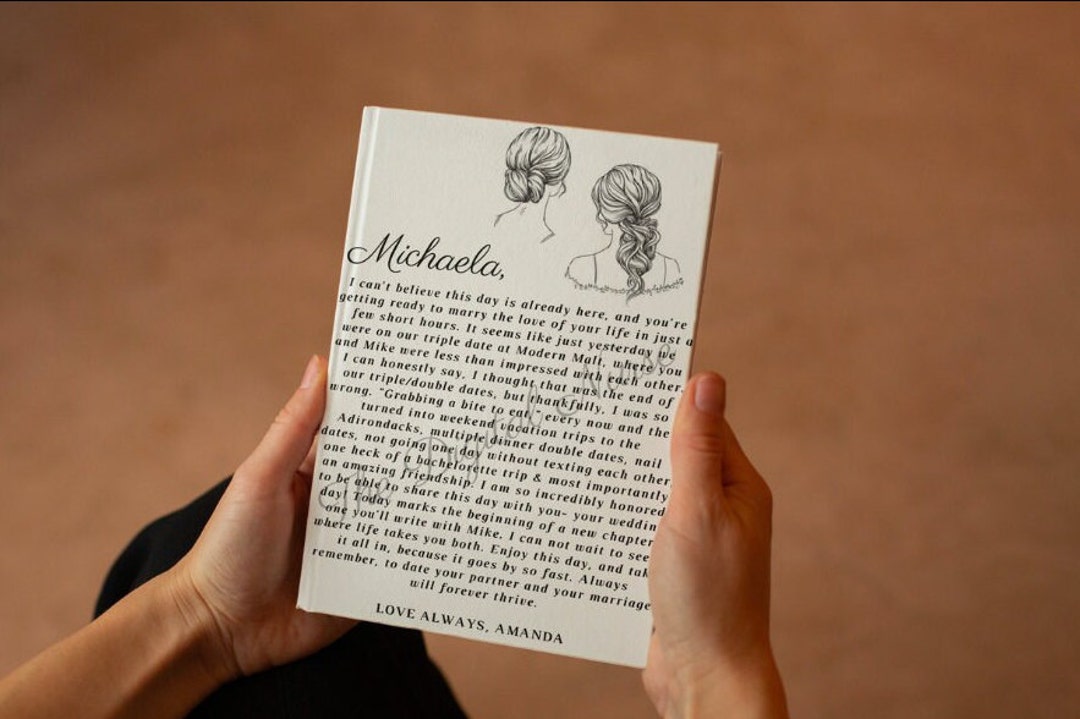 Michaela,
I can't believe this day is already here, and you're
getting ready to marry the love of your life in just a
few short hours. It seems like just yesterday we
were on our triple date at Modern Malt, where you
and Mike were less than impressed with each other.
I can honestly say, I thought that was the end of
our triple/double dates, but thankfully, I was so
wrong. "Grabbing a bite to eat, every now and the
turned into weekend vacation trips to the
Adirondacks, multiple dinner double dates, nail
dates, not going one day without texting each other,
one heck of a bachelorette trip & most importantly
an amazing friendship. I am so incredibly honored
to be able to share this day with you- your weddin
day! Today marks the beginning of a new chapter
one you'll write with Mike. I can not wait to see
where life takes you both. Enjoy this day, and tak
it all in, because it goes by so fast. Always
remember, to date your partner and your marriage
will forever thrive.
LOVE ALWAYS, AMANDA
The Digital Nurse